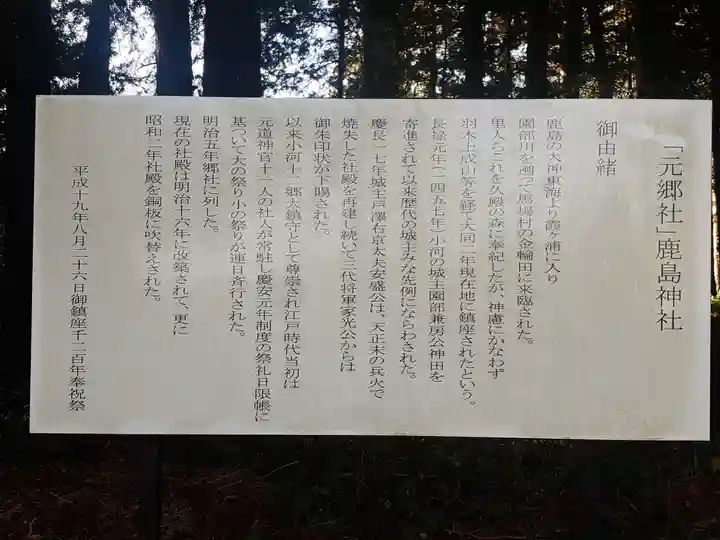 「元郷社」鹿島神社
御由緒
鹿島の大神東海より霞ヶ浦に入り
園部川を遡って馬場村の金輪田に来臨された。
里人らこれを久殿の森に奉祀したが、神慮にかなわず
羽木上成山等を経て大同二年現在地に鎮座されたという。
長禄元年(一四五七年)小河の城主園部兼房公神田を
寄進されて以来歴代の城主みな先例にならわされた。
慶長一七年城主戸澤右京太夫安盛公は、天正末の兵火で
焼失した社殿を再建し続いて三代将軍家光公からは
御朱印状が下賜された。
以来小河十二郷大鎮守として尊崇され江戸時代当初は
元道神官十二人の社人が常駐し慶安元年制度の祭礼日限帳に
基づいて大の祭り小の祭りが連日斉行された。
明治五年郷社に列した。
現在の社殿は明治十六年に改築されて、更に
昭和二年社殿を銅板に吹替えされた。
平成十九年八月二十六日御鎮座千二百年奉祝祭